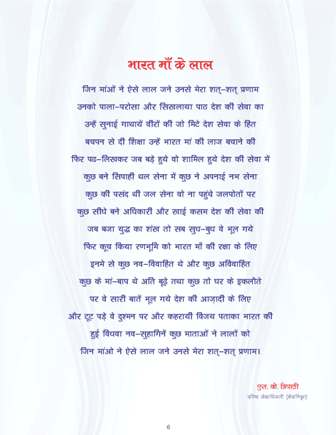 भारत माँ के लाल
जिन मांओं ने ऐसे लाल जने उनसे मेरा शत्-शत् प्रणाम
उनको पाला-परोसा और सिखलाया पाठ देश की सेवा का
उन्हें सुनाई गाथायें वीरों की जो मिटे देश सेवा के हित
बचपन से दी शिक्षा उन्हें भारत मां की लाज बचाने की
फिर पढ-लिखकर जब बड़े हुये वो शामिल हुये देश की सेवा में
कुछ बने सिपाही थल सेना में कुछ ने अपनाई नभ सेना
कुछ की पसंद थीं जल सेना वो ना पहुंचे जलपोतों पर
कुछ सीधे बने अधिकारी और खाई कसम देश की सेवा की
जब बजा युद्ध का शंख तो सब सुध-बुध वे भूल गये
फिर कूच किया रणभूमि को भारत माँ की रक्षा के लिए
इनमे से कुछ नव-विवाहित थे और कुछ अविवाहित
कुछ के मां-बाप थे अति बूढ़े तथा कुछ तो घर के इकलौते
पर वे सारी बातें भूल गये देश की आजादी के लिए
और टूट पड़े वे दुश्मन पर और फहरायी विजय पताका भारत की
हुई विधवा नव-सुहागिनें कुछ माताओं ने लालों को
जिन मांओ ने ऐसे लाल जने उनसे मेरा शत्-शत् प्रणाम।
एल. के. त्रिपाठी
वरिष्ठ लेखाधिकारी (सेवानिवृत्त)
6